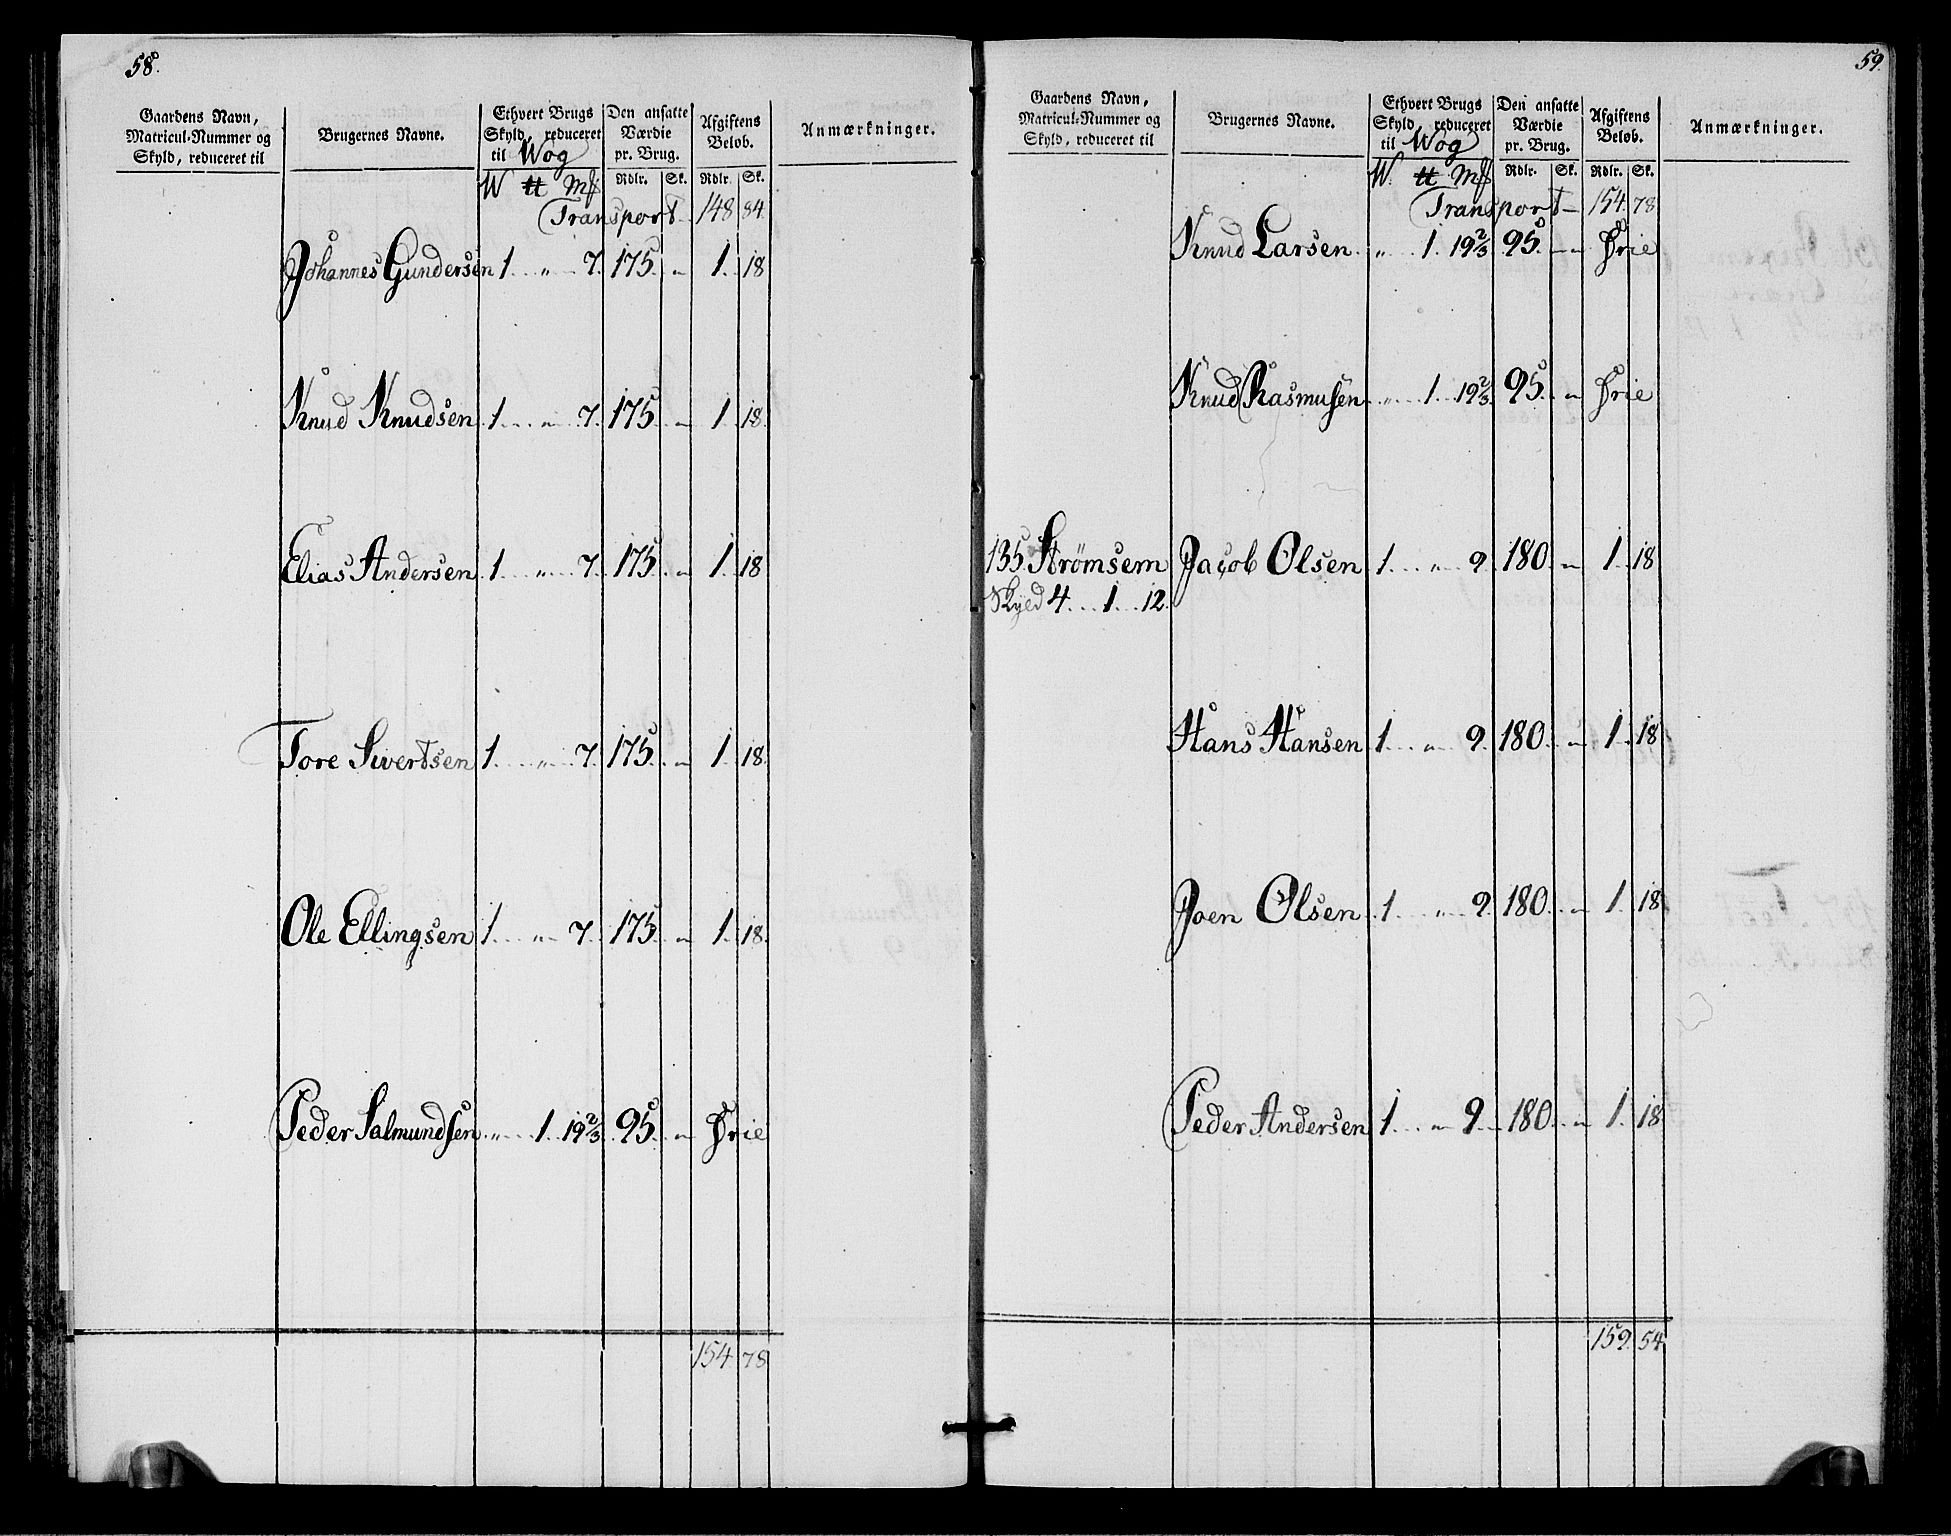 58.
Gaardens Navn, Matricul-Nummer og Skyld, reduceret til
Brugernes Navne.
Ethvert Brugs Skyld, reduceret til Wog
Den ansatte Værdie pr. Brug.
Afgiftens Beløb.
Anmærkninger.
W. ℔ Mk Rdlr. Sk. Rdlr. Sk.
Transport 148 84
Johannes Gundersen 1 " 7. 175. " 1. 18
Knud Knudsen 1 " 7. 175. " 1. 18
Elias Andersen 1 " 7. 175. " 1. 18
Tore Sivertsen 1 " 7. 175. " 1. 18
Ole Ellingsen 1 " 7. 175. " 1. 18
Peder Salmundsen " 1. 19 2/3 95. " Frie
154 78
59.
Gaardens Navn, Matricul-Nummer og Skyld, reduceret til
Brugernes Navne.
Ethvert Brugs Skyld, reduceret til Wog
Den ansatte Værdie pr. Brug.
Afgiftens Beløb.
Anmærkninger.
W. ℔ Mk Rdlr. Sk. Rdlr. Sk.
Transport 154. 78
Knud Larsen " 1. 19 2/3 95. " Frie
Knud Rasmusen " 1. 19 2/3. 95. " Frie
135. Strømsem Jacob Olsen 1 " 9. 180 " 1. 18
Skyld 4 1 12.
Hans Hansen 1 " 9. 180. " 1. 18
Joen Olsen 1 " 9. 180. " 1. 18
Peder Andersen 1 " 9. 180. " 1. 18
159. 54